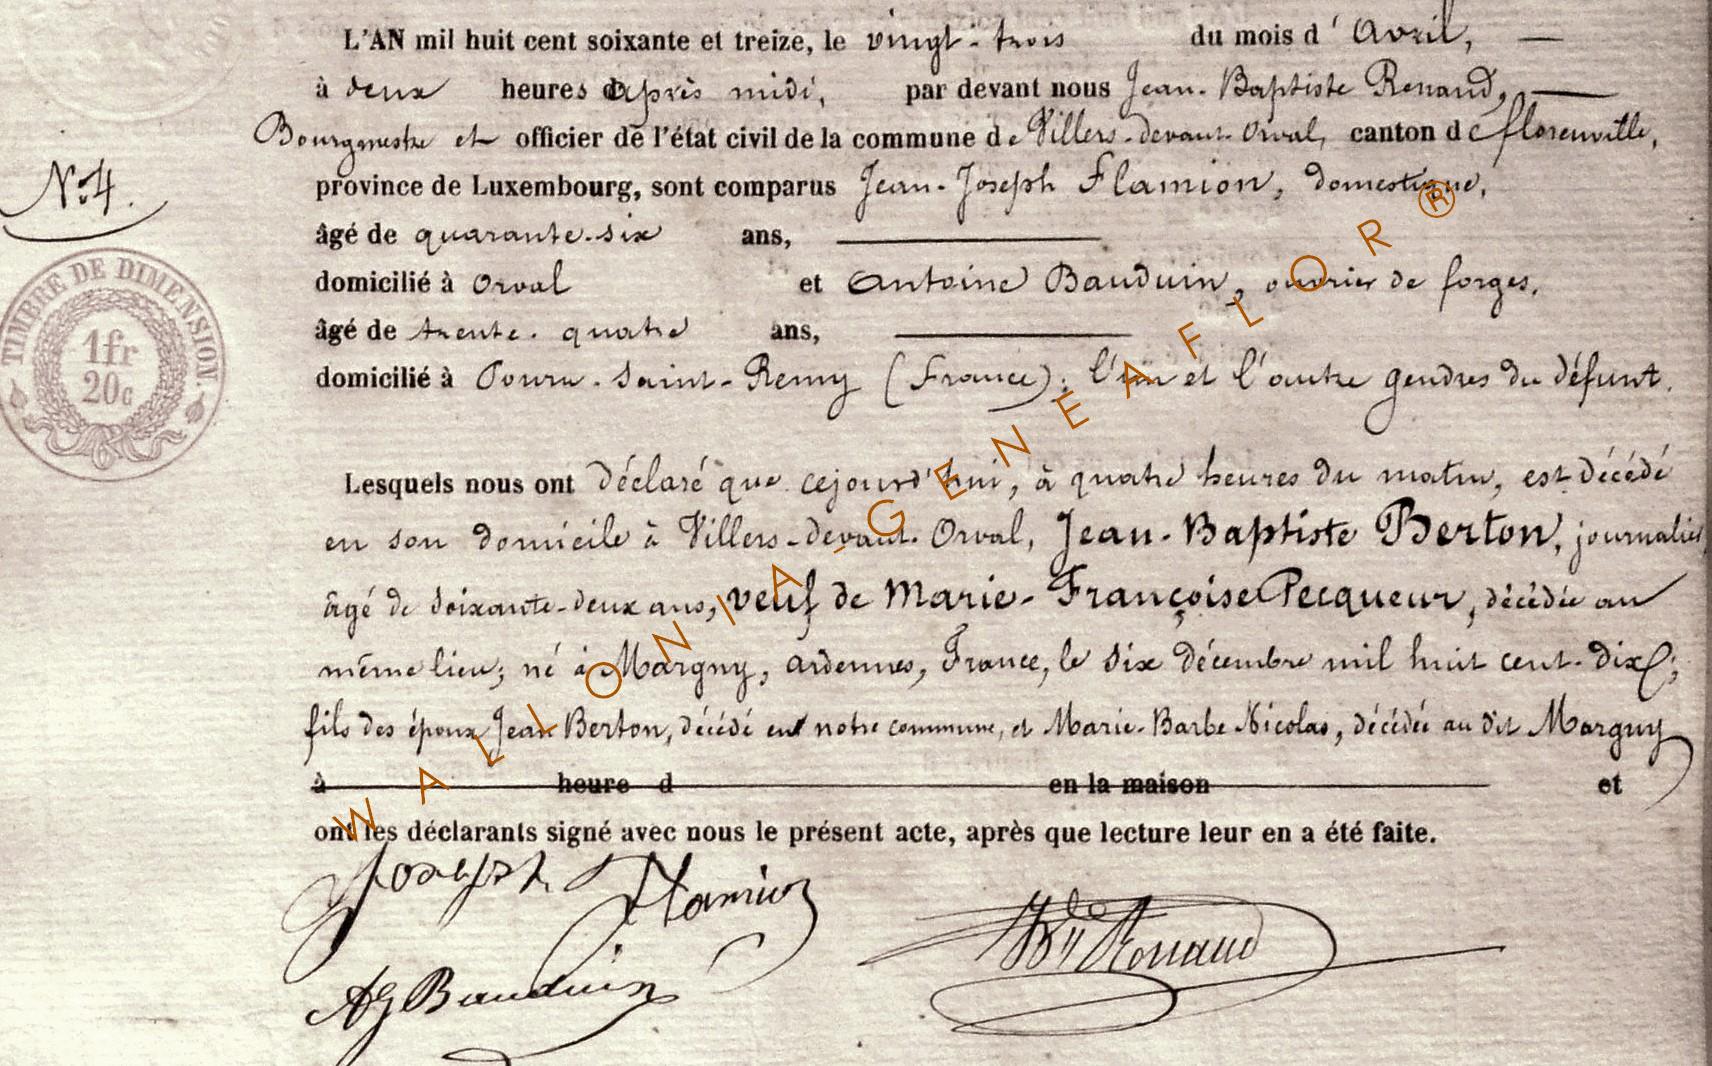 L'AN mil huit cent soixante et treize, le vingt-trois du mois d'Avril,
à deux heures d'après midi, par devant nous Jean-Baptiste Renaud,
Bourgmestre et officier de l'état civil de la commune de Villers-devant-Orval, canton de florenville,
N°4.
province de Luxembourg, sont comparus Jean-Joseph Flamion, domestique,
âgé de quarante-six ans,
domicilié à Orval et Antoine Bauduin, ouvrier de forges,
âgé de trente-quatre ans,
domicilié à Pouru-Saint-Remy (France); l'un et l'autre gendres du défunt.
TIMBRE DE DIMENSION.
1fr
20c
Lesquels nous ont déclaré que cejourd'hui, à quatre heures du matin, est décédé
en son domicile à Villers-devant-Orval, Jean-Baptiste Berton, journalier,
âgé de soixante-deux ans, veuf de Marie-Françoise Pecqueur, décédée au
même lieu; né à Margny, ardennes, France, le six décembre mil huit cent-dix;
fils des époux Jean Berton, décédé en notre commune, et Marie-Barbe Nicolas, décédée au dit Margny
à heure d en la maison et
ont les déclarants signé avec nous le présent acte, après que lecture leur en a été faite.
Joseph Flamion
Renaud
AJ Bauduin
WALLONIA-GENEAFLOR®